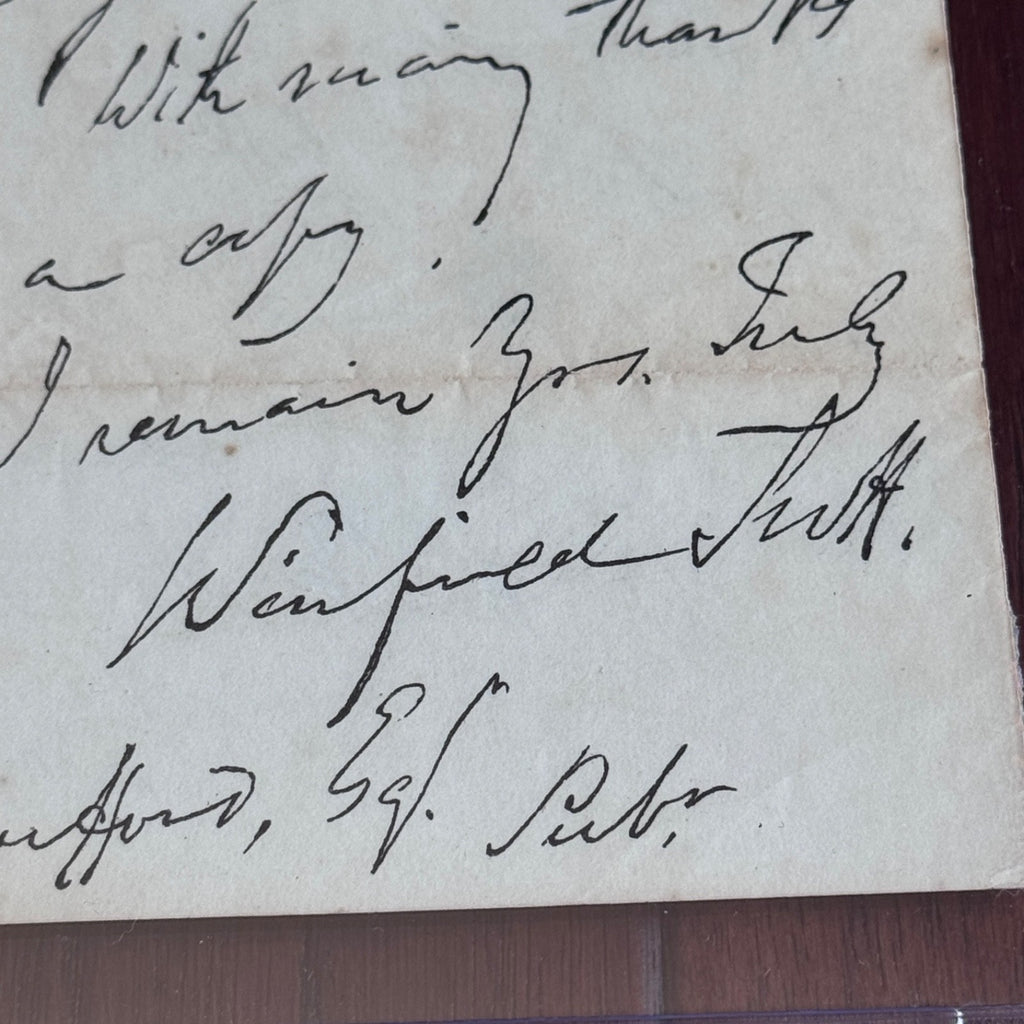 With many thanks
a copy.
I remain Yrs. Truly
Winfield Scott.
Esq. Pubr